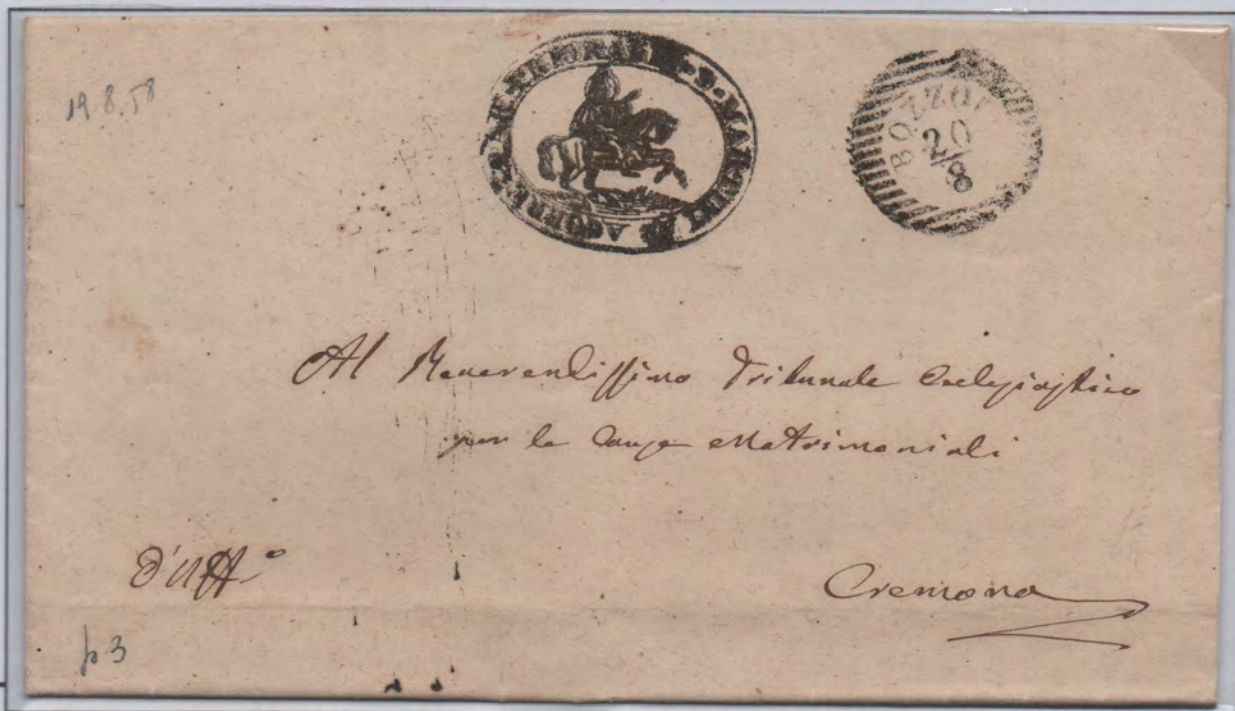 19.8.58
S·MARTINI
BOZZOL
20/8
Al Reverendissimo Tribunale Ecclesiastico
per le Cause Matrimoniali
d'Uff.o
Cremona
p. 3